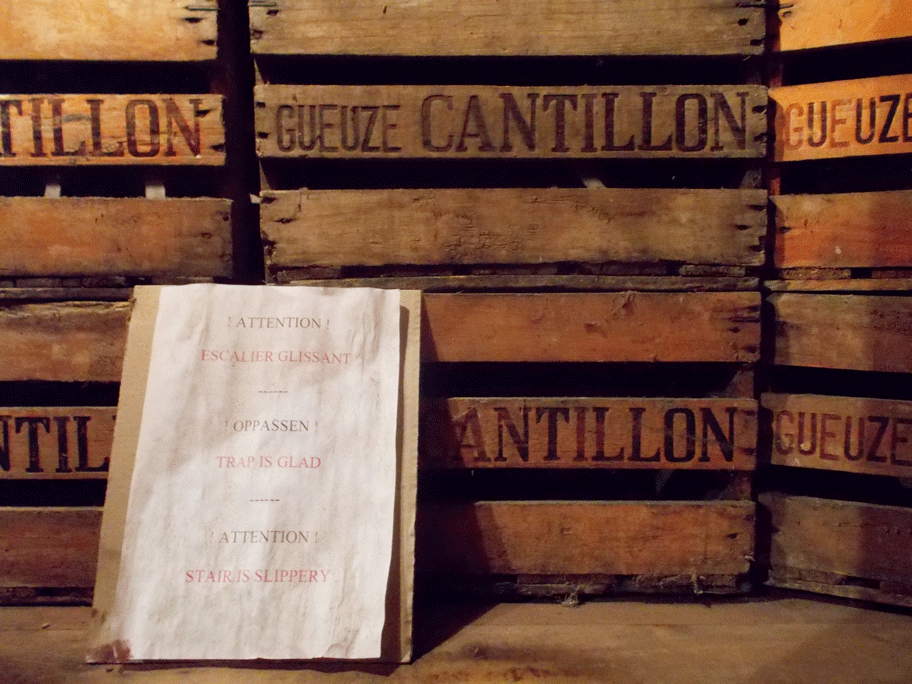 TILLON
GUEUZE CANTILLON
GUEUZE
! ATTENTION !
ESCALIER GLISSANT
------
! OPPASSEN !
TRAP IS GLAD
------
! ATTENTION !
STAIR IS SLIPPERY
NTIL
ANTILLON
GUEUZE